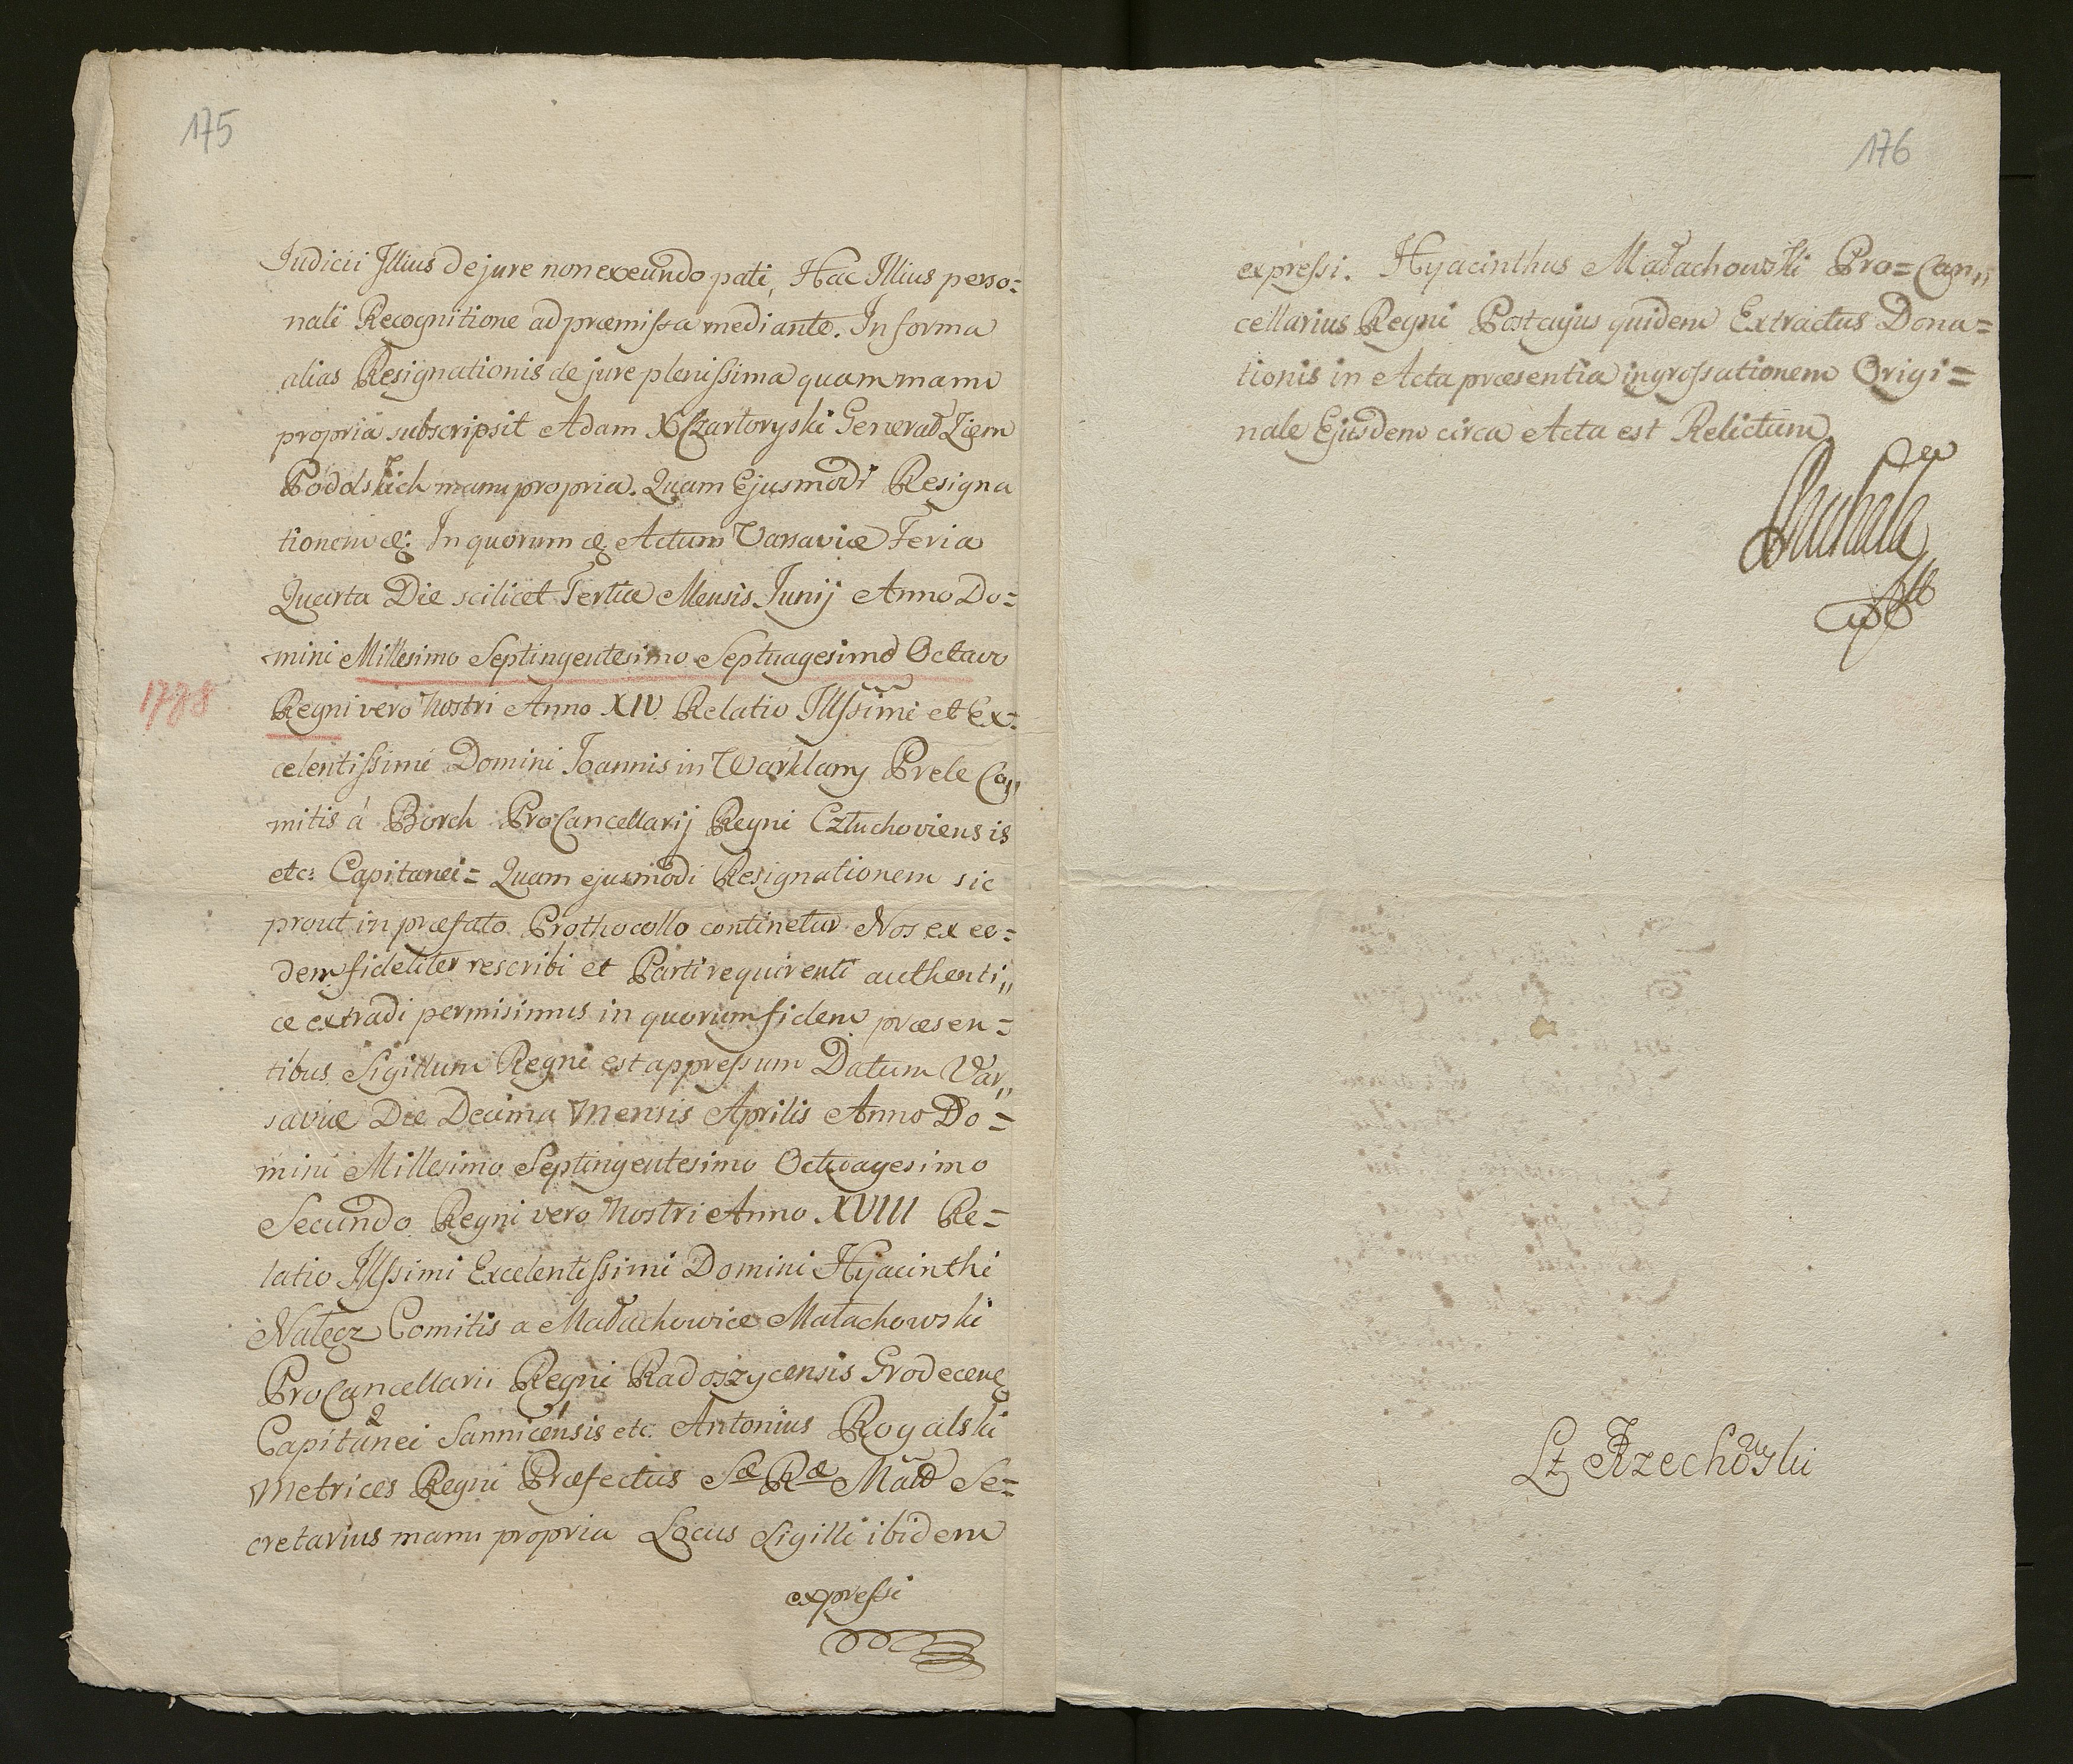 175
Judicii Illius de jure non exeundo pati, Hac Illius perso=
nali Recognitione ad præmissa mediante. In forma
alias Resignationis de jure plenissima quam manu
propria subscripsit Adam X Czartoryski Generał Ziem
Podolskich manu propria. Quam Ejusmodi Resigna
tionem &: In quorum & Actum Varsaviæ Feria
Quarta Die scilicet Tertia Mensis Junij Anno Do=
mini Millesimo Septingentesimo Septuagesimo Octavo
1778
Regni vero Nostri Anno XIV Relatio Illssimi et Ex=
celentissimi Domini Joannis in Warklany Prele Co,,
mitis à Borch ProCancellarij Regni Człuchoviensis
etc: Capitanei = Quam ejusmodi Resignationem sic
prout in præfato Prothocollo continetur Nos ex eo=
dem fideliter rescribi et Parti requirenti authenti,,
ce extradi permisimus in quorum fidem præsen=
tibus Sigillum Regni est appressum Datum Var,,
saviæ Die Decima Mensis Aprilis Anno Do=
mini Millesimo Septingentesimo Octuagesimo
Secundo Regni vero Nostri Anno XVIII Re=
latio Illssimi Excelentissimi Domini Hyacinthi
Nałęcz Comitis a Małachowice Małachowski
ProCancellarii Regni Radoszycensis Grodecens
Capitanei Sannicensis etc. Antonius Rogalski
Metrices Regni Præfectus Sæ Ræ Mattis Se=
cretarius manu propria Locus Sigilli ibidem
expressi
176
expressi. Hyacinthus Małachowski Pro=Can,,
cellarius Regni Post cujus quidem Extractus Dona=
tionis in Acta præsentia ingrossationem Origi=
nale Ejusdem circa Acta est Relictum
Lt Rzechowski